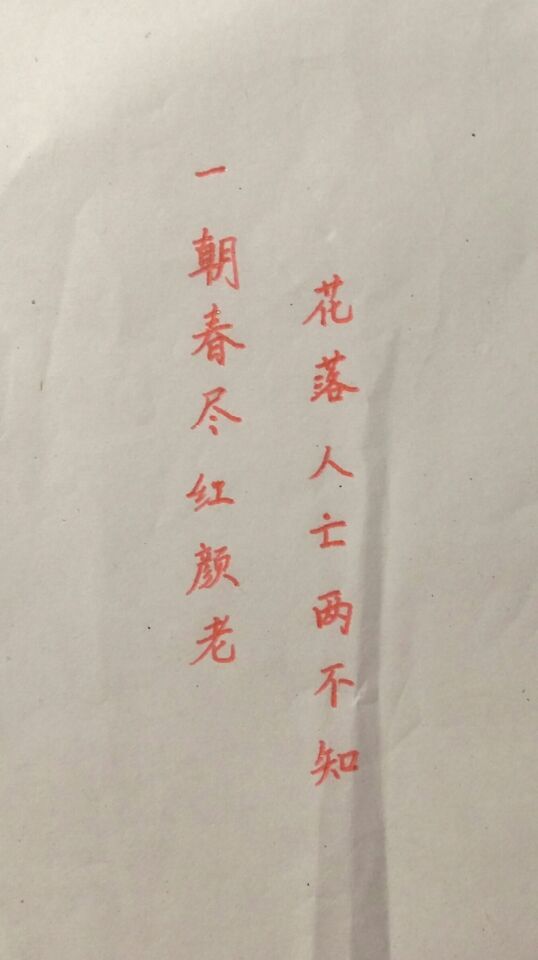 一朝春尽红颜老
花落人亡两不知